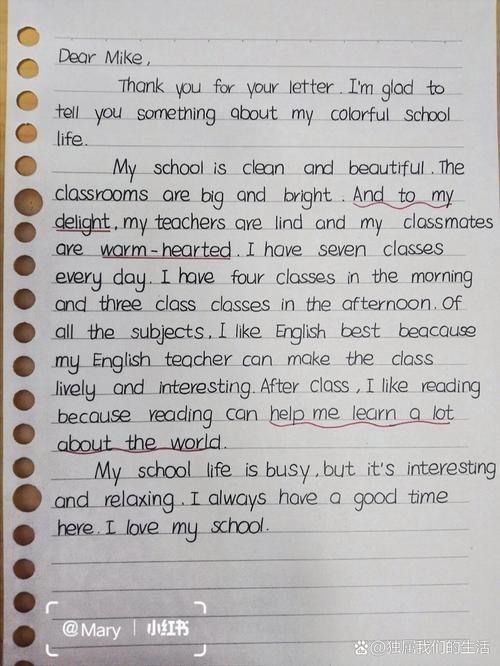 Dear Mike,
Thank you for your letter. I'm glad to
tell you something about my colorful school
life.
My school is clean and beautiful. The
classrooms are big and bright. And to my
delight, my teachers are lind and my classmates
are warm-hearted. I have seven classes
every day. I have four classes in the morning
and three class classes in the afternoon. Of
all the subjects, I like English best beacause
my English teacher can make the class
lively and interesting. After class, I like reading
because reading can help me learn a lot
about the world.
My school life is busy, but it's interesting
and relaxing. I always have a good time
here. I love my school.
@Mary | 小红书
@独属我们的生活